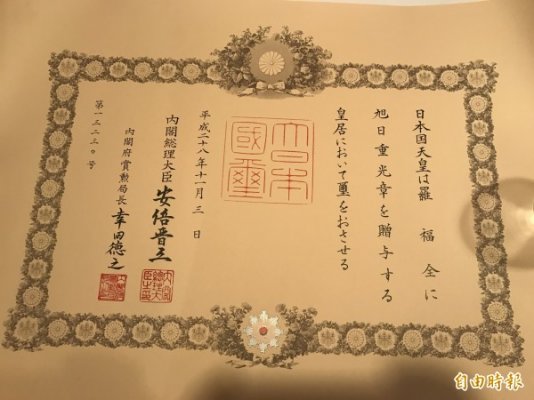 日本国天皇は羅 福 全に
旭日重光章を贈与する
皇居において璽をおさせる
大日本
國璽
平成二十八年十一月三日
内閣総理大臣 安倍晋三
内閣総理大臣之印
内閣府賞勲局長 幸田徳之
第一三二三〇号
自由時報